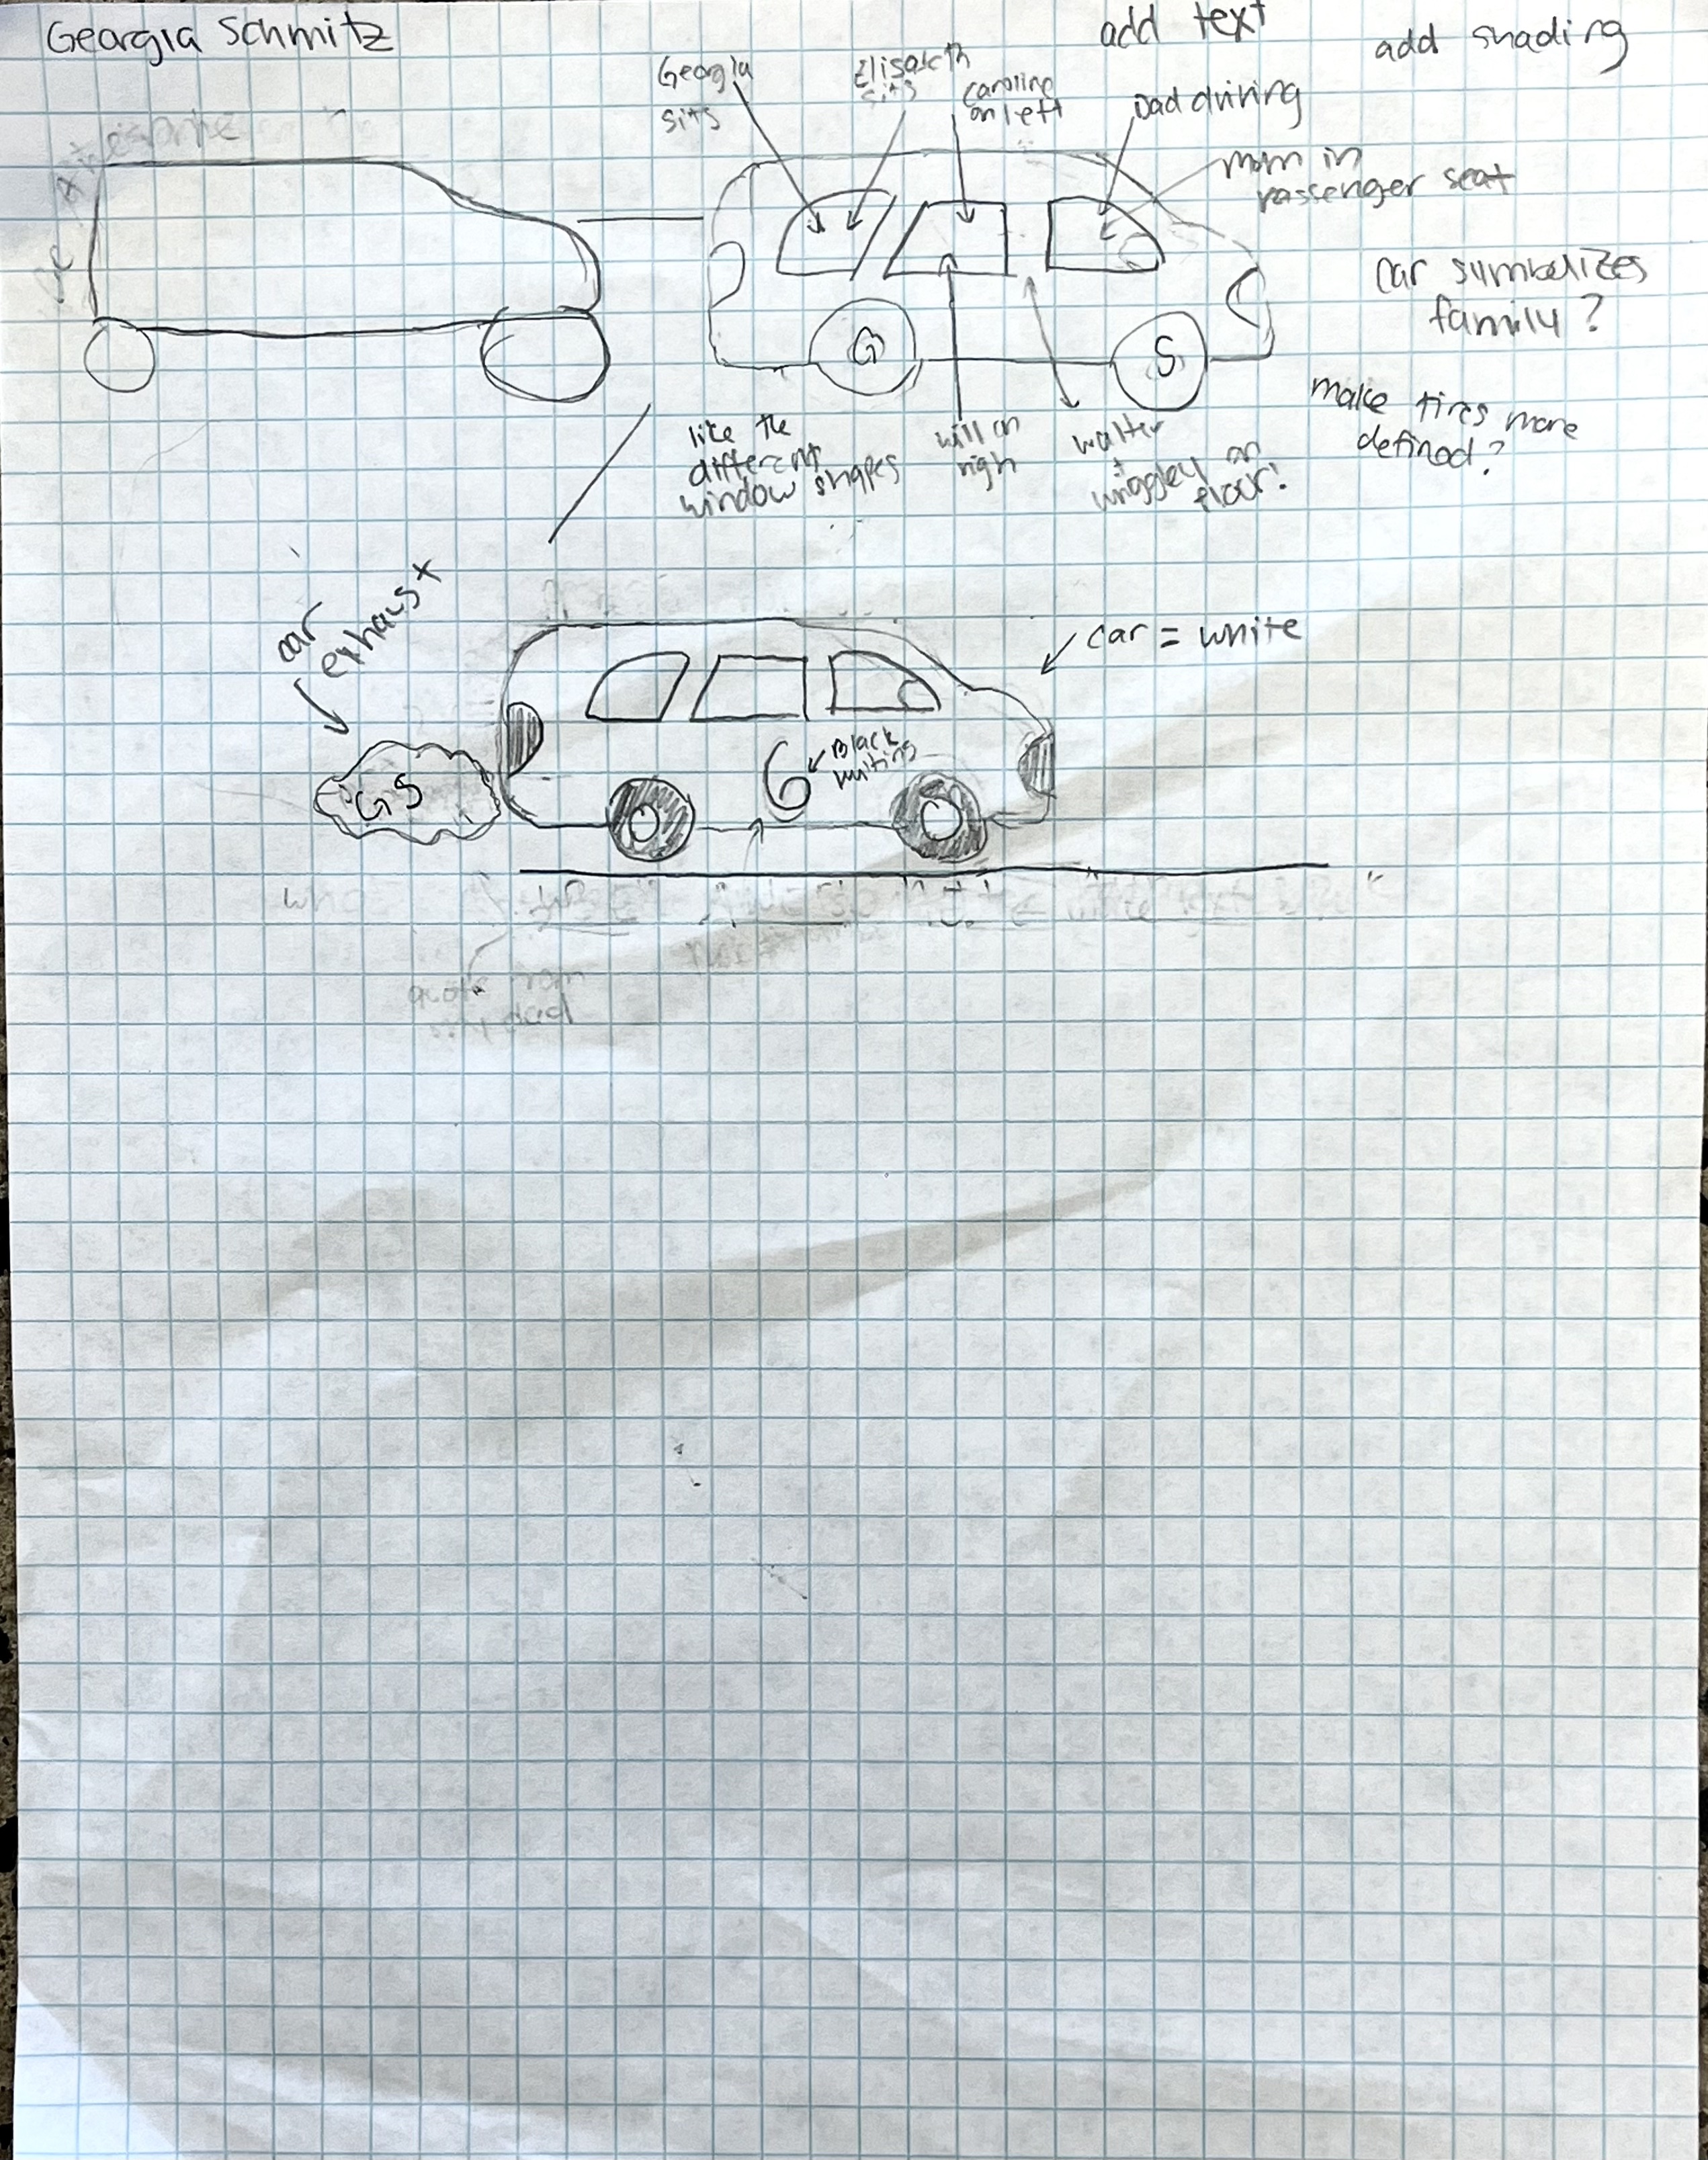 Georgia Schmitz
add text
add shading
Georgia
sits
Elisabeth
sits
caroline
on left
Dad driving
mom in
passenger seat
car symbolizes
family?
make tires more
defined?
G
S
like the
different
window shapes
will on
righ
walter
+
wriggley on
floor!
car
exhaust
car = white
6
Black
writing
GS
quote from
dad